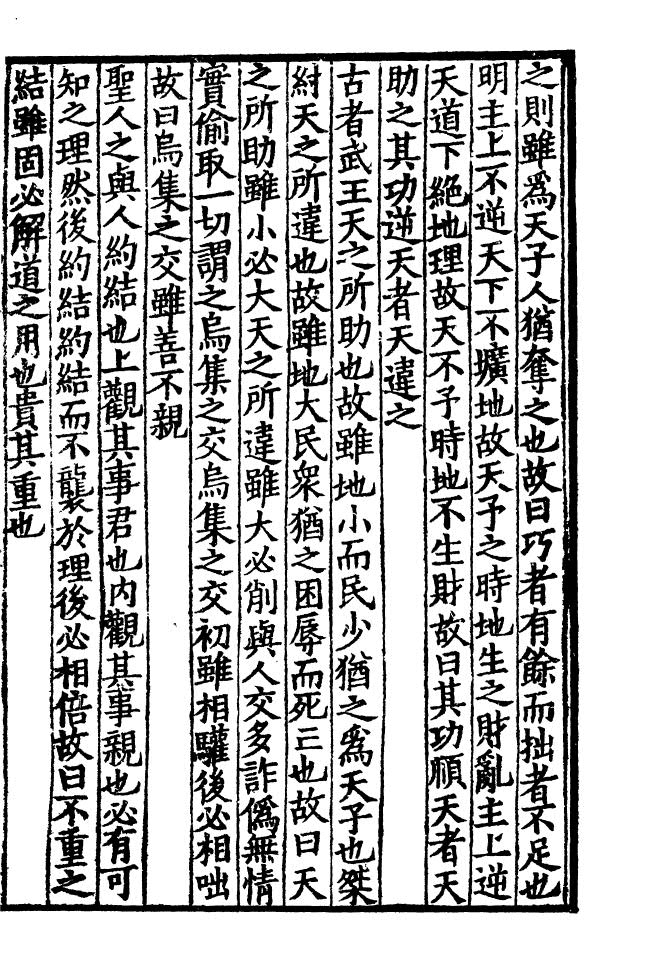 之則雖爲天子人猶奪之也故曰巧者有餘而拙者不足也
明主上不逆天下不壙地故天予之時地生之財亂主上逆
天道下絕地理故天不予時地不生財故曰其功順天者天
助之其功逆天者天違之
古者武王天之所助也故雖地小而民少猶之爲天子也桀
紂天之所違也故雖地大民衆猶之困辱而死亡也故曰天
之所助雖小必大天之所違雖大必削與人交多詐僞無情
實偷取一切謂之烏集之交烏集之交初雖相驩後必相咄
故曰烏集之交雖善不親
聖人之與人約結也上觀其事君也內觀其事親也必有可
知之理然後約結約結而不襲於理後必相倍故曰不重之
結雖固必解道之用也貴其重也